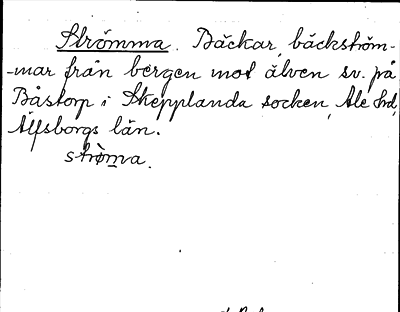 Strömma. Bäckar, bäckström-
-mar från bergen mot älven sv. på
Båstorp i Skepplanda socken, Ale hd,
Älfsborgs län.
strò̱m̱a.